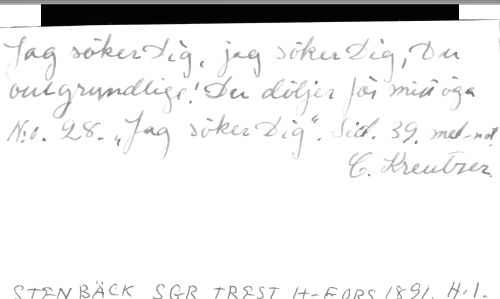 Jag söker Dig, jag söker Dig, Du
outgrundlige! Du döljer för mitt öga
N:o. 28. „Jag söker Dig“. Sid. 39. mel-not.
C. Kreutzer.
STENBÄCK SGR TREST H-FORS 1891. H.1.